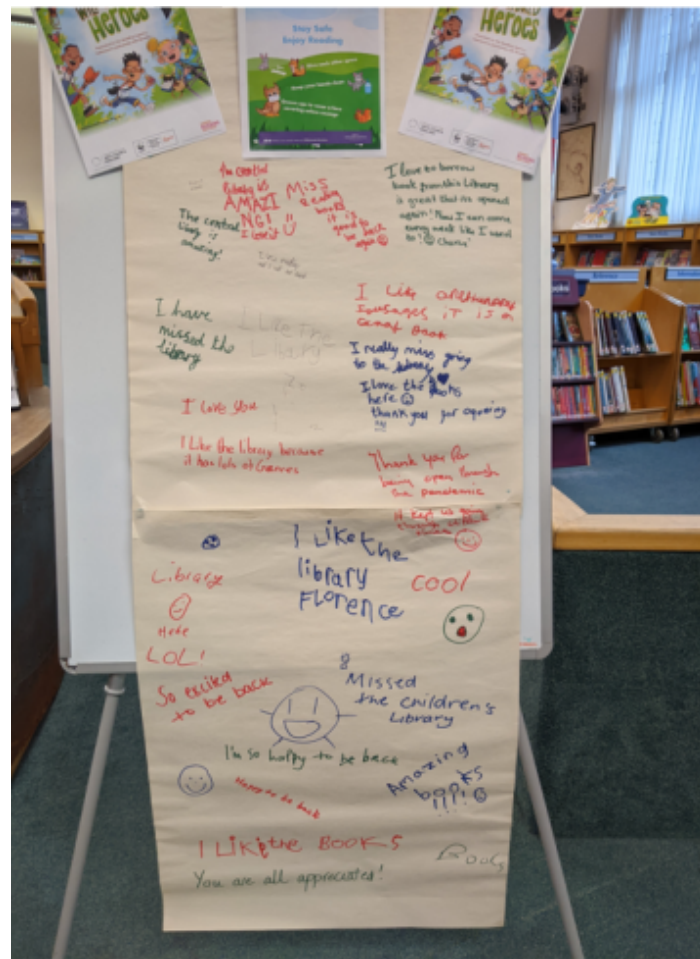 Heroes
Stay Safe
Enjoy Reading
Heroes
The central
library is
AMAZI
NG!
I love it
Miss
reading
books
it is
good to
be back
again
I love to borrow
book from this Library
is great that its opened
again! Now I can come
every week like I used
to!
The central
library is
amazing!
I have
missed the
library
I Like the
Library
I like
sausages it is a
great book
I really miss going
to the library
I love the books
here
thank you for opening
!!!
I love you
I Like the Library because
it has lots of
Thank you for
being open through
the pandemic
It kept us going
I Like the
library
FLORENCE
Library
Here
LOL!
COOL
So excited
to be back
8
Missed
the children's
Library
I'm so happy to be back
Amazing
books
!!!!
Happy to be back
I Like the BOOKS
You are all appreciates!